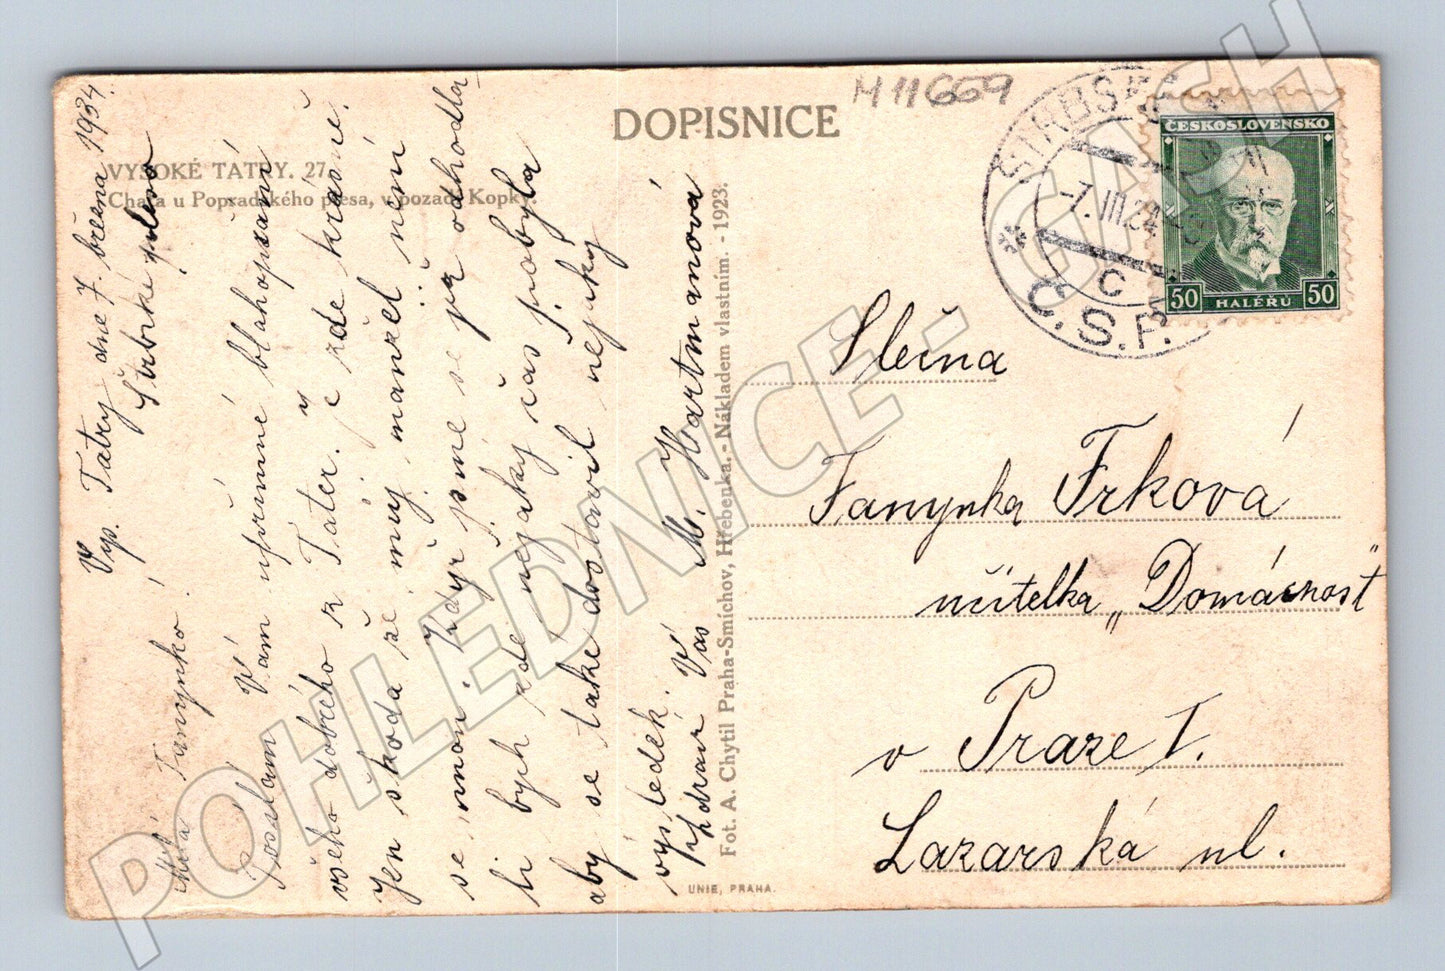 DOPISNICE
M 11659
VYSOKÉ TATRY. 27.
Chata u Popradského plesa, v pozadí Kopky.
Vys. Tatry dne 7. března 1934.
Štrbské pleso
Milá Fanynko!
Posílám Vám upřímné blahopřání
všeho dobrého z Tater. Je zde krásně.
Jen škoda že můj manžel není
se mnou. Když jsme se již odhodla-
li bych zde nějaký čas pobyla
aby se také dostavil nějaký
výsledek.
Zdraví Vás M. Hartmanová
Fot. A. Chytil Praha-Smíchov, Hřebenka. - Nákladem vlastním. - 1923.
UNIE, PRAHA.
ČESKOSLOVENSKO
50 HALÉŘŮ 50
-7.III.34
C
Č.S.P.
Slečna
Fanynka Frková
učitelka „Domácnost"
v Praze I.
Lazarská ul.
POHLEDNICE - CASH